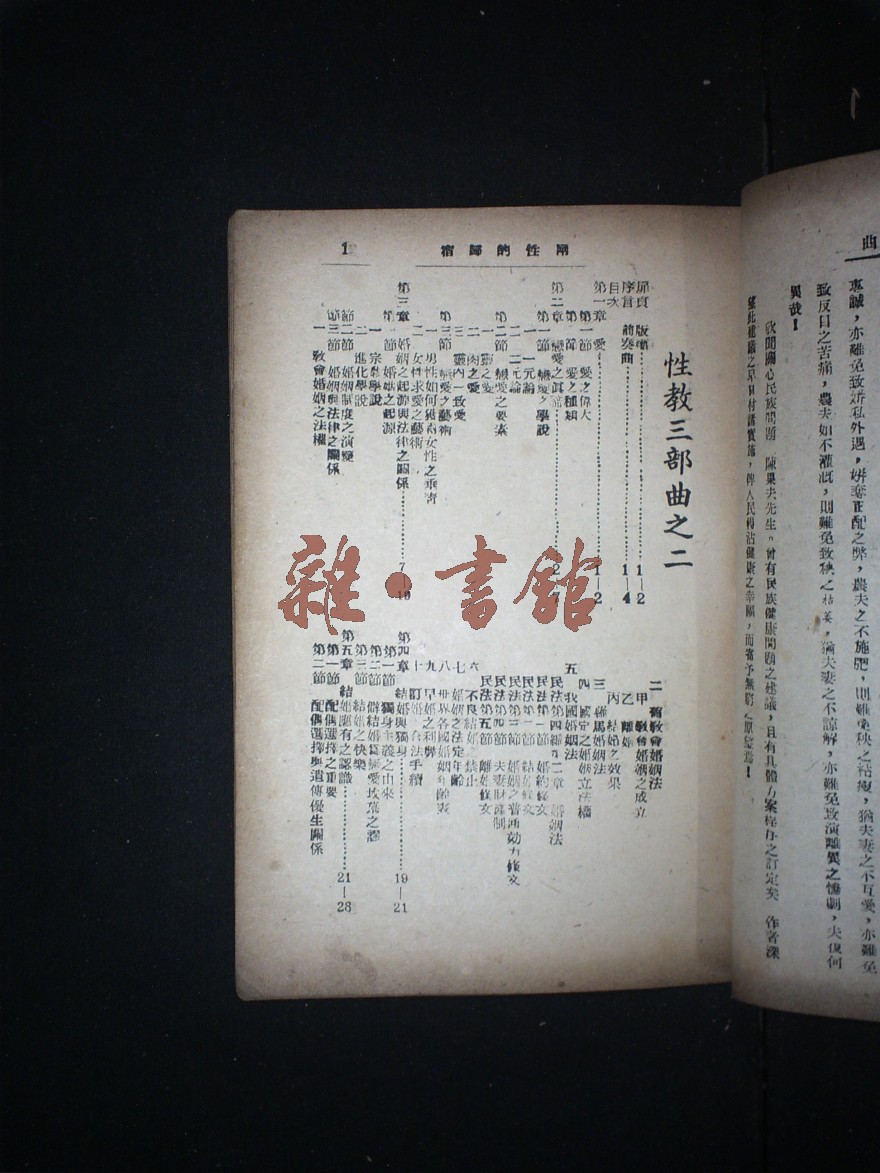 曲
惠誠，亦難免致姘私外遇，姘奪正配之弊，農夫之不施肥，則難免秧之枯瘦，猶夫妻之不互愛，亦難免
致反目之苦痛，農夫如不灌溉，則難免致秧之枯萎，猶夫妻之不諒解，亦難免致演離異之慘劇，夫復何
異哉！
欣聞關心民族問題 陳果夫先生，曾有民族健康問題之建議，且有具體方案程序之訂定矣 作者深
望此建議之早日付諸實施，俾人民得沾健康之幸福，而寄予無窮之願望焉！
兩性的歸宿
1
性教三部曲之二
扉頁 版權 1—2
序言 前奏曲 1—4
目次
第一章 愛 1—2
第一節 愛之偉大
第二節 愛之種類
第二章 戀愛之真諦 2—7
第一節 戀愛之學說
一 一元論
二 二元論
第二節 戀愛之要素
一 靈之愛
二 肉之愛
三 靈肉一致愛
第三節 戀愛之藝術
一 男性如何獲得女性之垂青
二 女性求愛之藝術
第三章 婚姻之起源與法律之關係 7—19
第一節 婚姻之起源
一 宗教學說
二 進化學說
第二節 婚姻制度之演變
第三節 婚姻與法律之關係
一 教會婚姻之法權
二 舊教會婚姻法
甲 教會婚姻之成立
乙 離婚
丙 結婚之效果
三 羅馬婚姻法
四 國定之婚姻立法權
五 我國婚姻法
民法第四編第二章 婚姻法
民法第一節 婚約條文
民法第二節 結婚條文
民法第三節 婚姻之普通効力條文
民法第四節 夫妻財產制
民法第五節 離婚條文
六 不良結婚之禁止
七 婚姻之法定年齡
八 世界各國婚姻年齡表
九 早婚之利弊
十 訂婚之合法手續
第四章 結婚與獨身 19—21
第一節 獨身主義之由來
第二節 僻結婚為戀愛墳墓之謬
第三節 結婚之快樂
第五章 結婚應有之認識 21—28
第一節 配偶選擇之重要
第二節 配偶選擇與遺傳優生關係
雜·書館